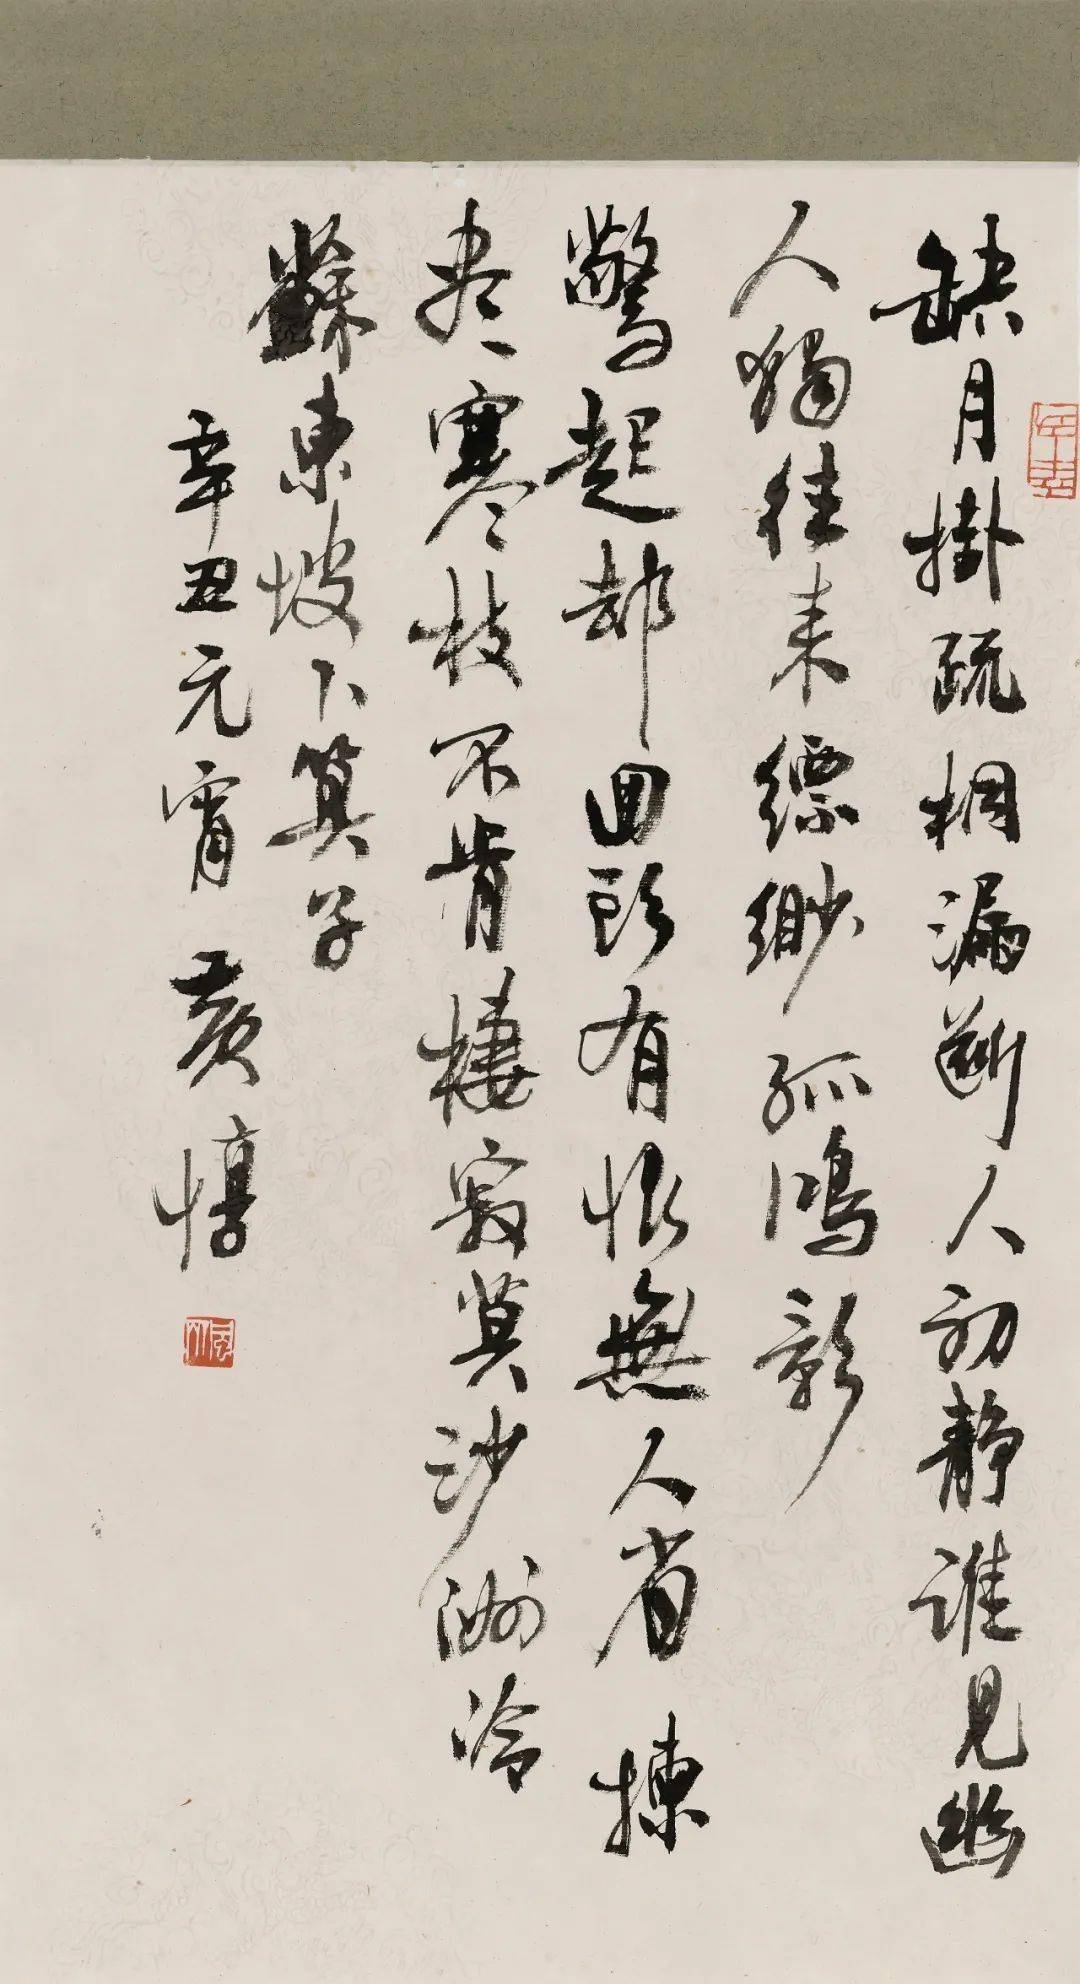 缺月掛疏桐漏斷人初靜誰見幽
人獨往来縹緲孤鴻影
驚起却回頭有恨無人省揀
盡寒枝不肯棲寂寞沙洲冷
蘇東坡卜算子
辛丑元宵 黄惇